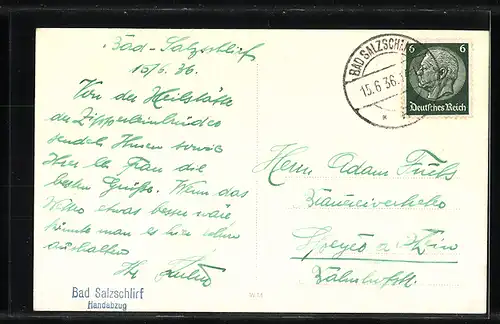 Bad-Salzschlirf
15/6. 36.
Von der Heilstätte
der Zipperleinbrüder
sendet Ihnen sowie
Ihrer lb. Frau die
besten Grüße. Wenn das
Wetter etwas besser wäre
könnte man es hier schon
aushalten
Ihr
BAD SALZSCHLIRF
15.6.36.
6 6
Deutsches Reich
Herrn Adam Fuchs
Speyer a. Rhein
Bahnhofstr.
Bad Salzschlirf
Handabzug